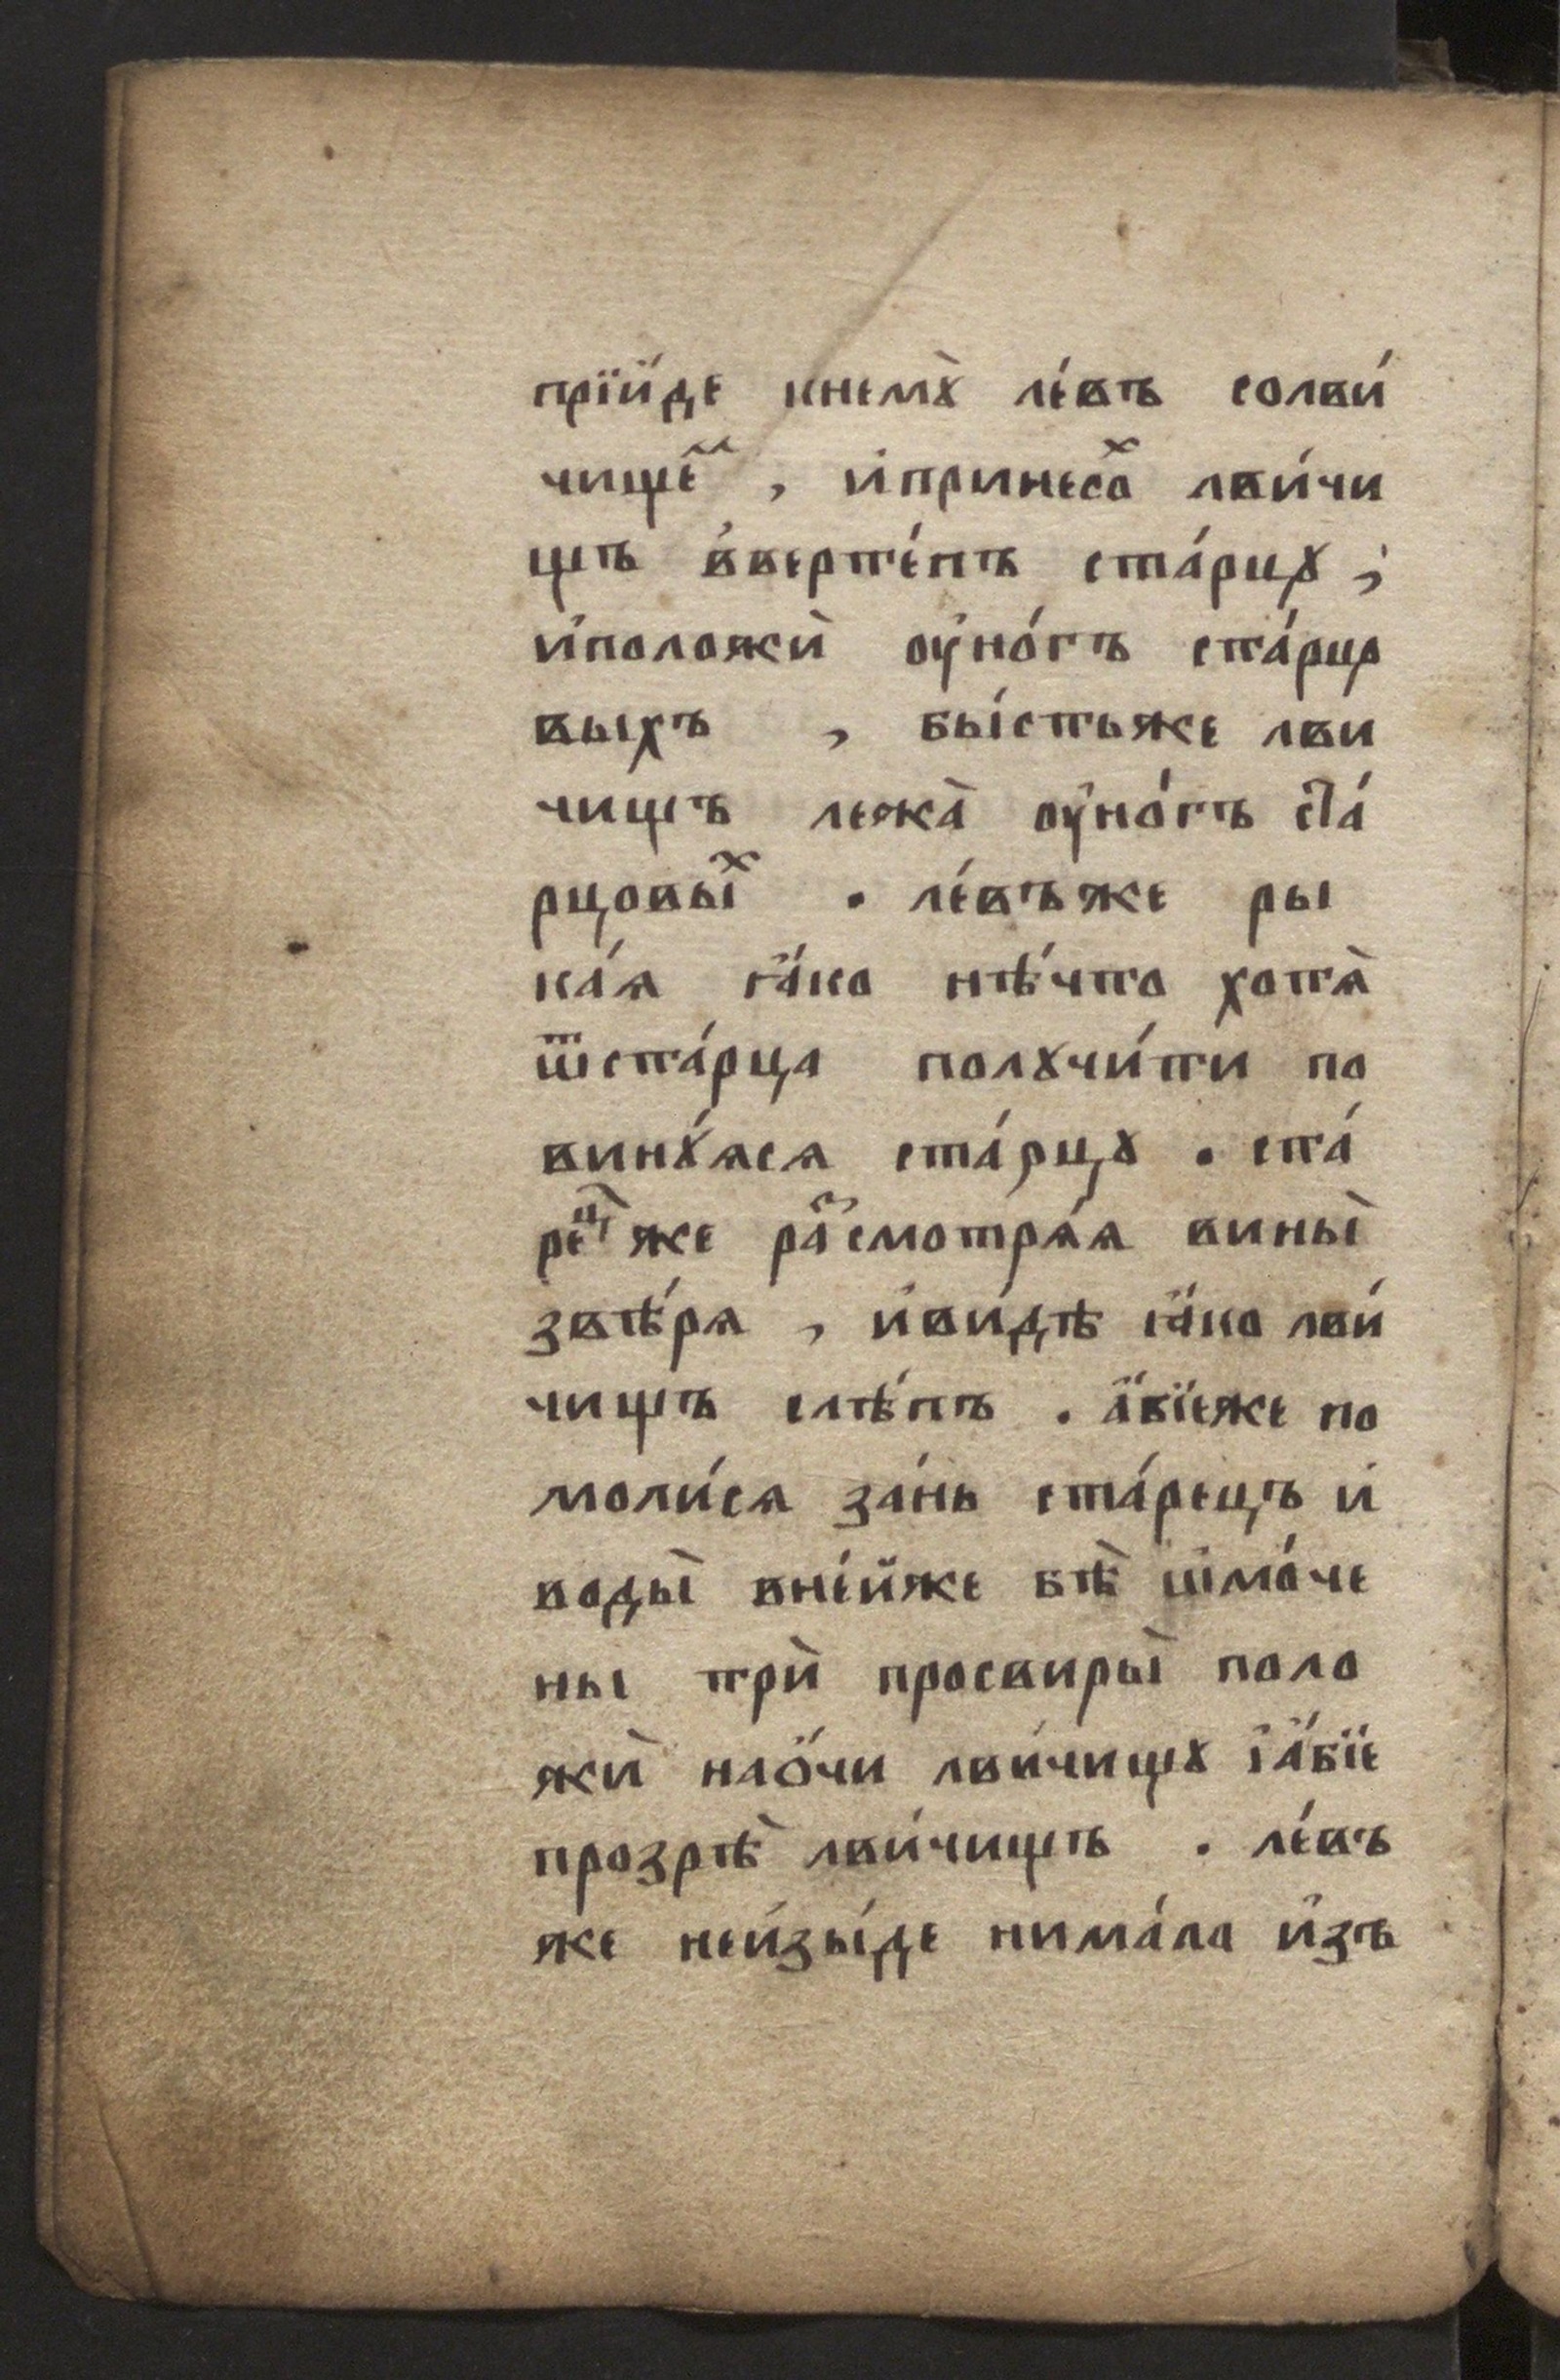 прїи́де кнемꙋ̀ ле́въ солви́
чищеⷨ҇ , и҆принесоⷯ лви́чи
щъ в̾верте́пъ ста́рцꙋ ,
и҆положѝ ѹ҆но́гъ ста́рцо
выхъ , бы́стьже лви
чищъ лежа̀ ѹ҆но́гъ ста́
рцовыⷯ . ле́въже ры
ка́ѧ ꙗ҆́ко нѣ́что хотѧ̀
ѿста́рца полꙋчи́ти по
винꙋ́ѧсѧ ста́рцꙋ . ста́
реⷰ҇же раⷭ҇смотрѧ́ѧ вины̀
звѣ́рѧ , и҆ви́дѣ ꙗ҆́ко лви́
чищъ слѣ́пъ . а҆́бїеже по
моли́сѧ за́нь ста́рецъ и҆
воды̀ вне́йже бѣ̀ ѡ҆мо́че
ны трѝ просвиры̀ поло
жѝ нао҆́чи лви́чищꙋ і҆а҆́бїе
прозрѣ̀ лви́чищъ . ле́въ
же неи҆зы́де нима́ло и҆зъ